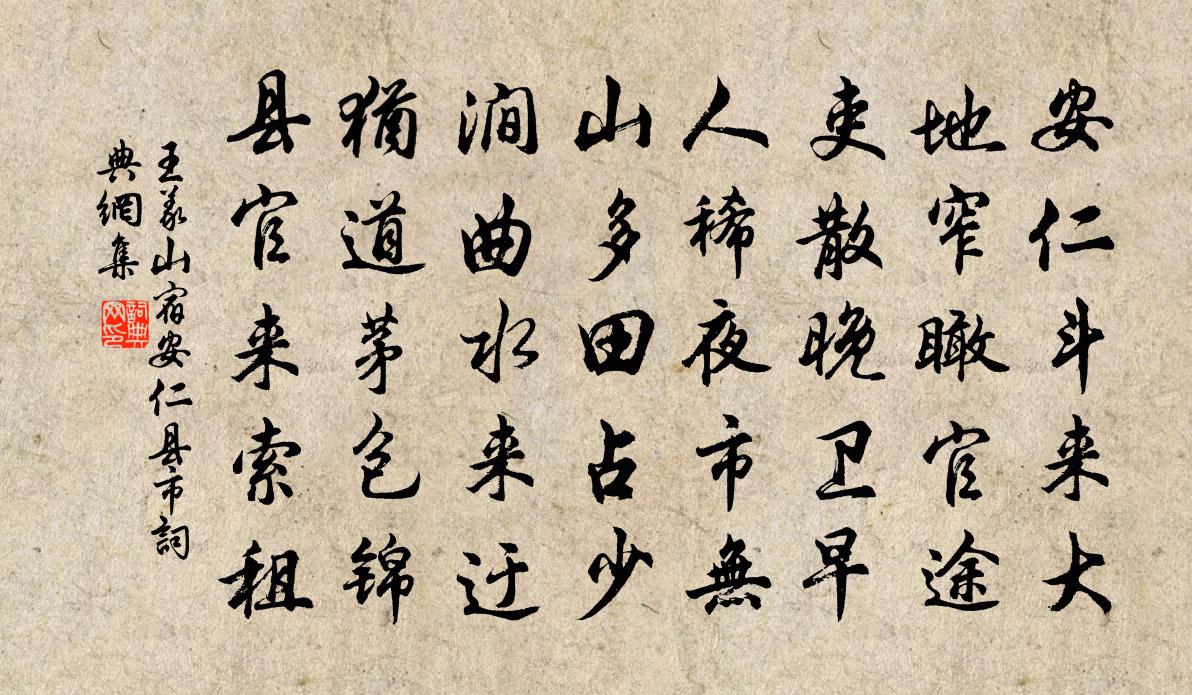 安仁斗来大
地窄瞰官途
吏散晚卫早
人稀夜市無
山多田占少
涧曲水来迂
猶道茅包锦
县官来索租
王义山宿安仁县市詞
典網集
詞典
网印